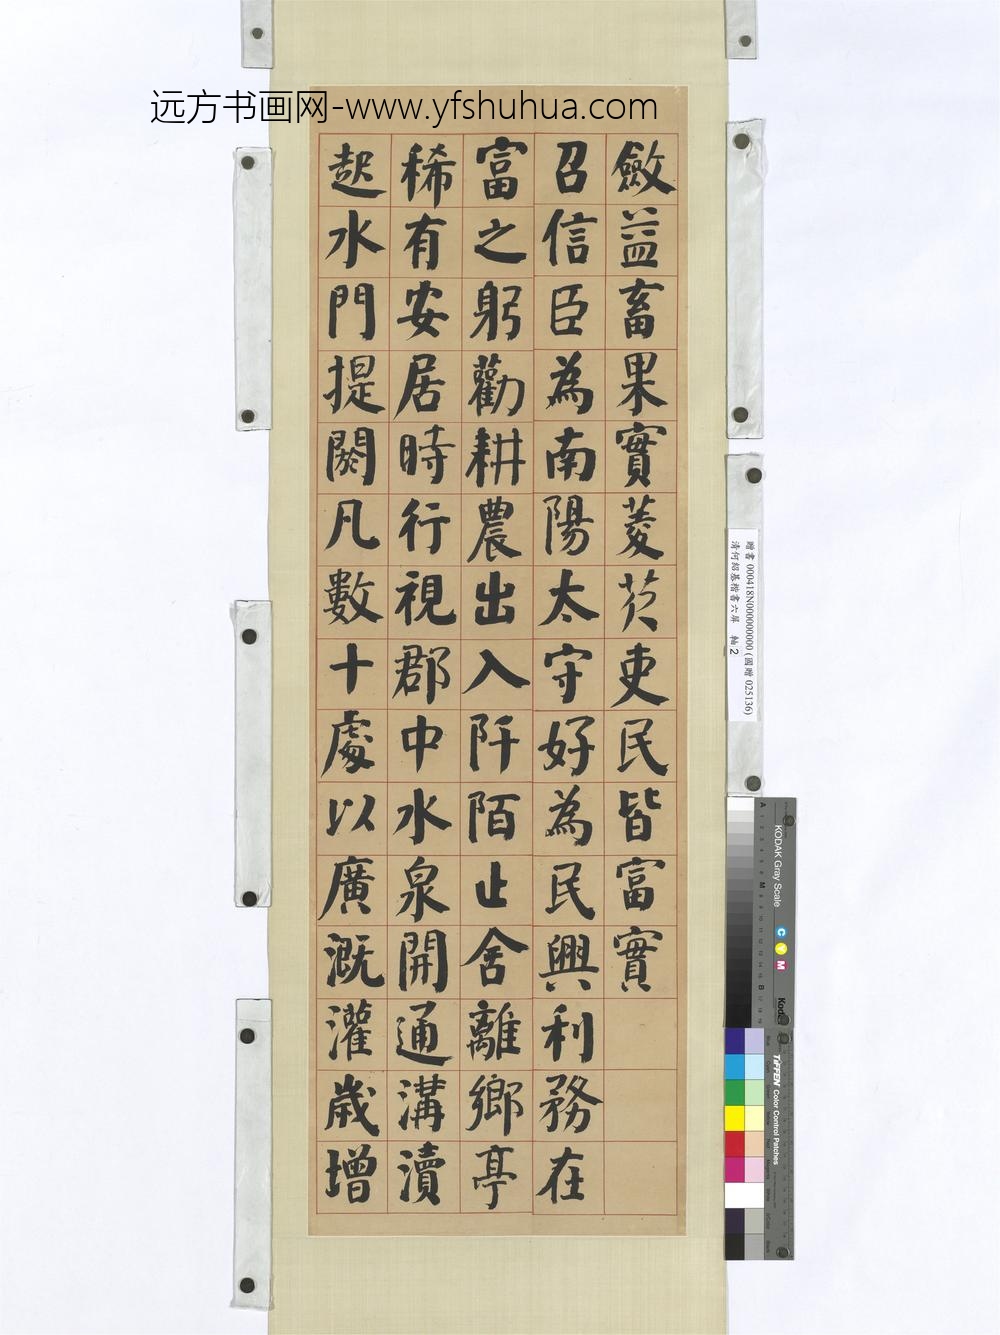 远方书画网-www.yfshuhua.com
斂益畜果實菱芡吏民皆富實
召信臣為南陽太守好為民興利務在
富之躬勸耕農出入阡陌止舍離鄉亭
稀有安居時行視郡中水泉開通溝瀆
起水門提閼凡數十處以廣溉灌歲增
贈書 000418N000000000 (國贈 025136)
清何紹基楷書六屏 軸 2
KODAK Gray Scale
C
Y
M
Kodak
A
M
B
TIFFEN Color Control Patches